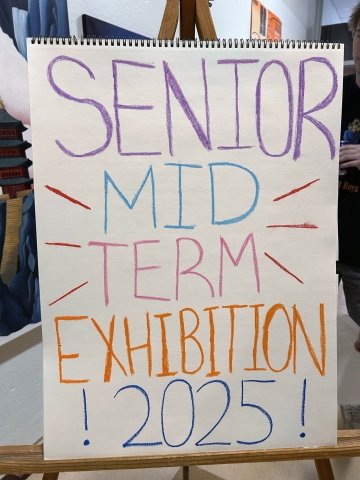 SENIOR
MID
TERM
EXHIBITION
! 2025 !